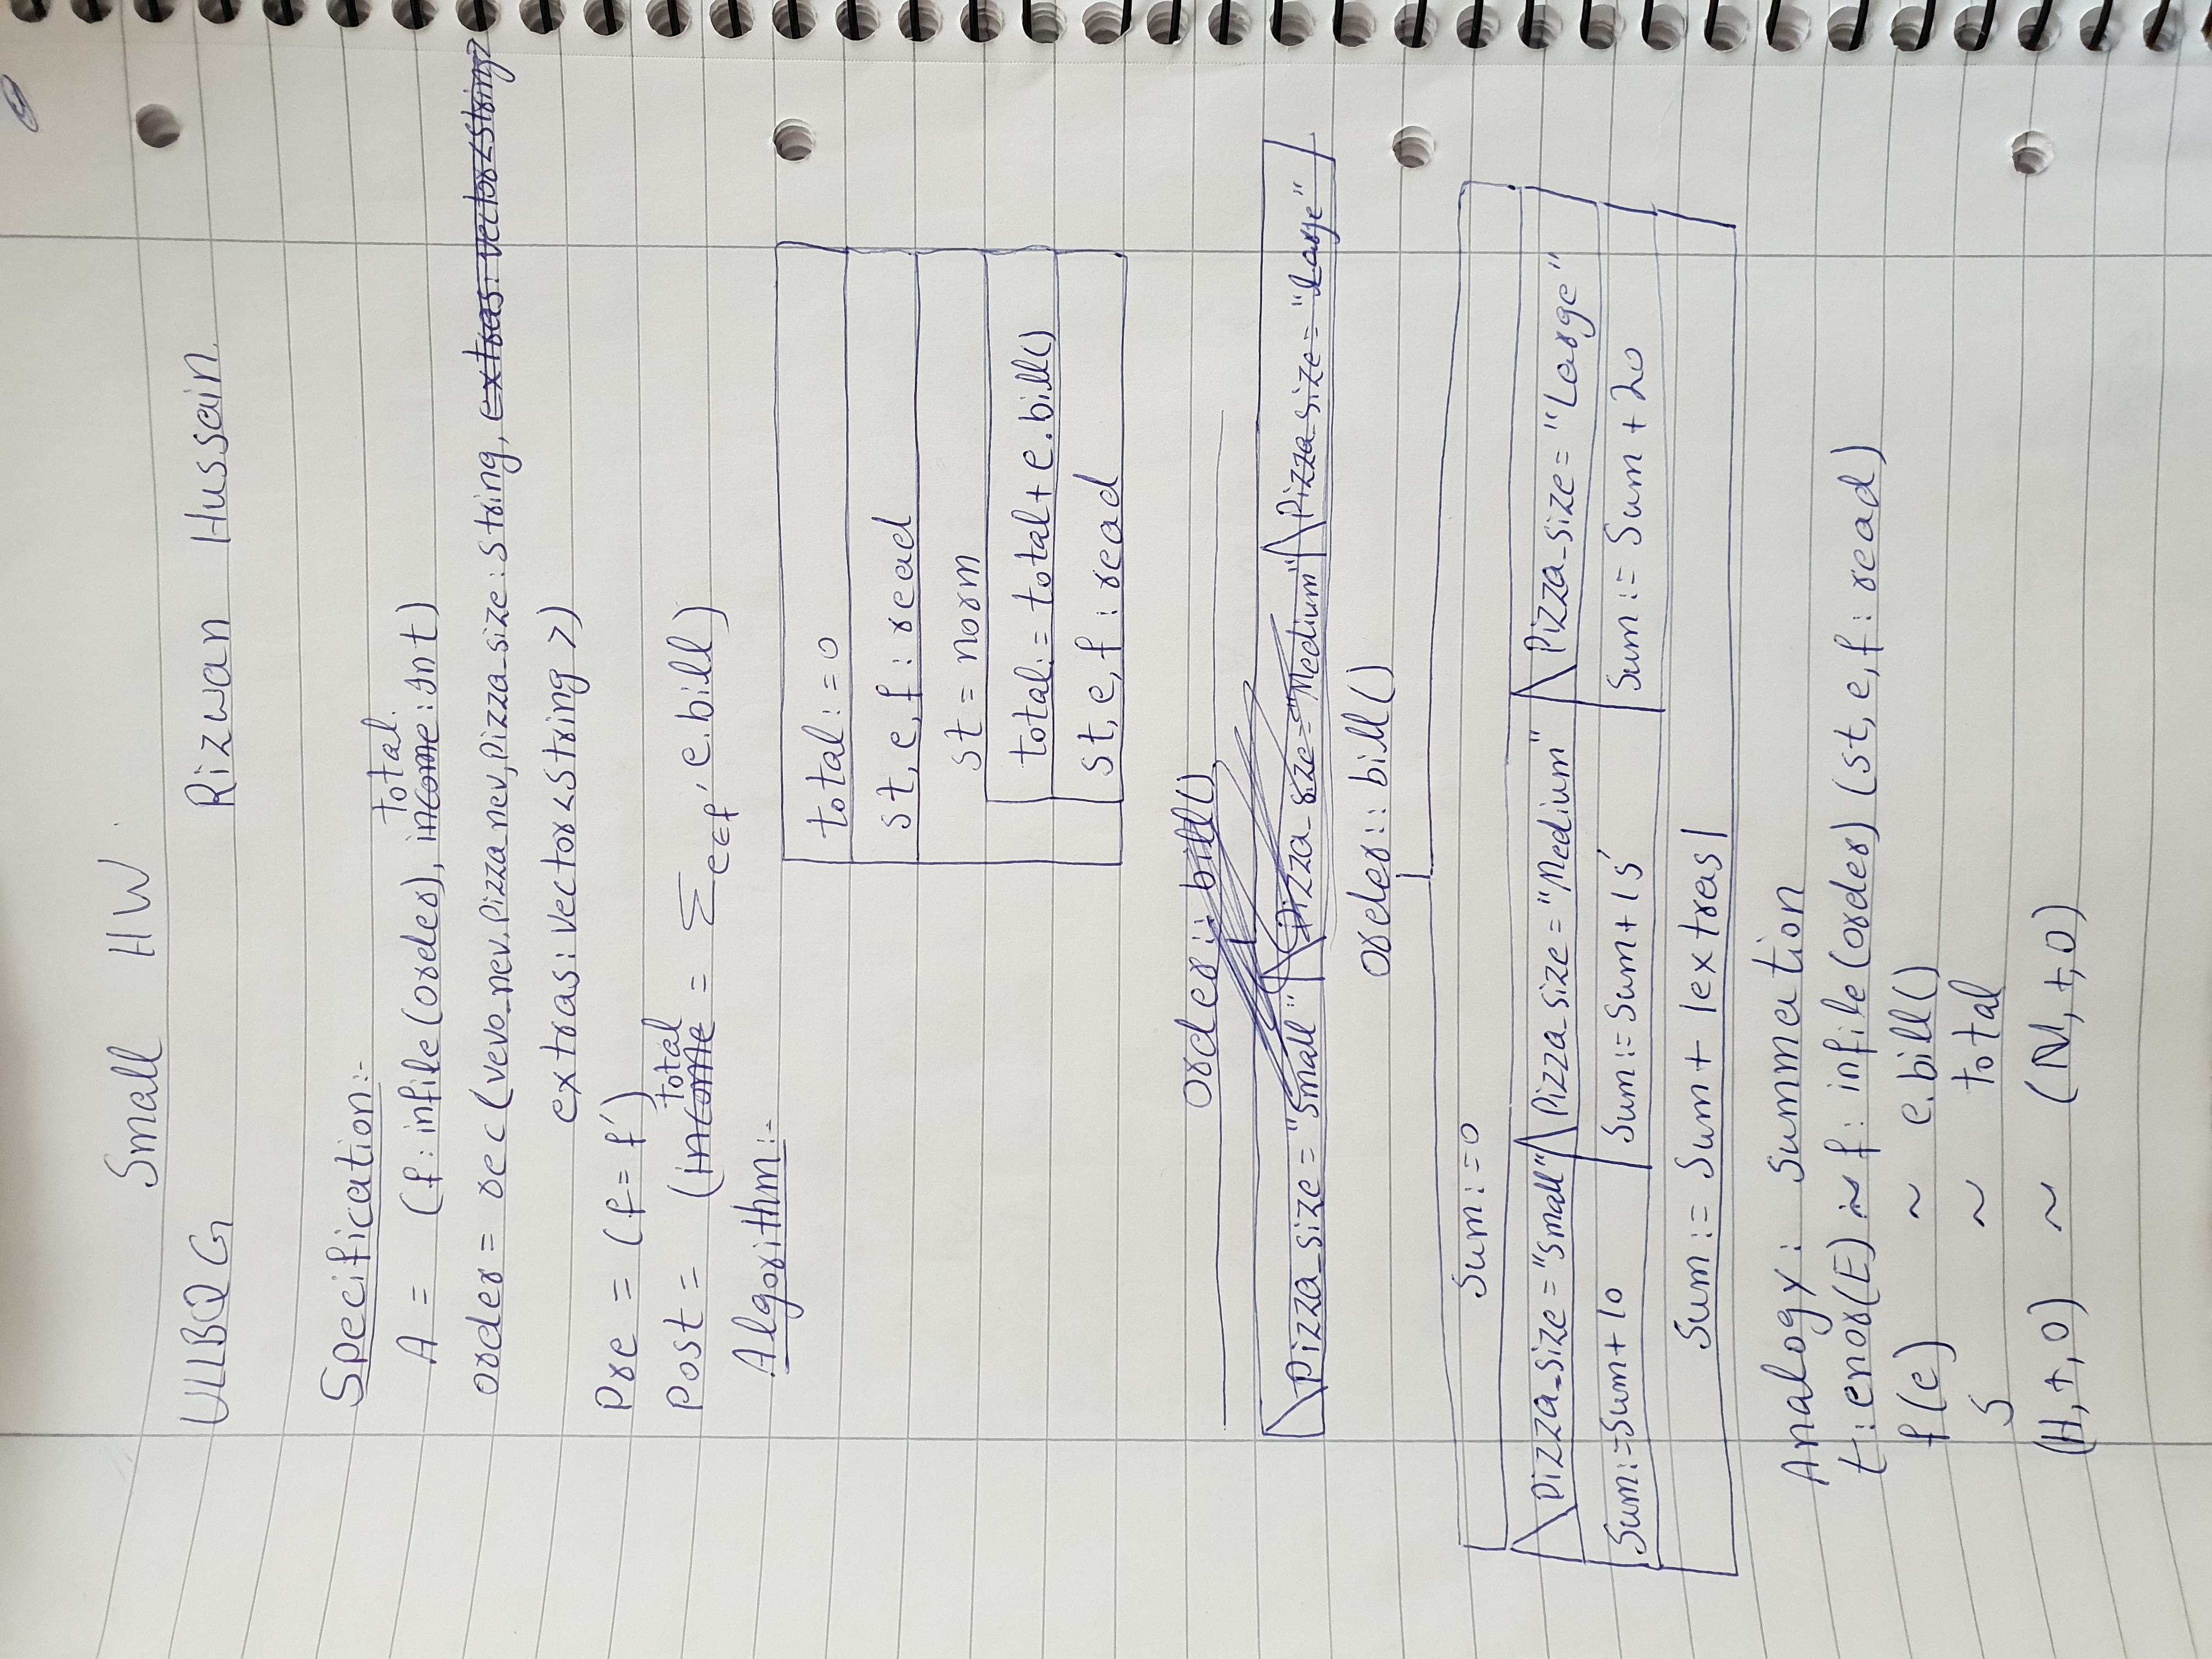 Small HW
ULLBQG Rizwan Hussain.
Specification:-
total.
A = (f: infile(order), income: Int)
order = rec(vevo_nev, Pizza_nev, Pizza_size: String, extras: vector<String>
extras: vector<string>)
Pre = (f = f')
total
Post = (income = Σe∈f' e.bill)
Algorithm:-
total := 0
st, e, f : read
st = norm
total := total + e.bill()
st, e, f : read
order :: bill()
Pizza_size = "Small" Pizza_size = "Medium" Pizza_size = "Large"
order :: bill()
Sum := 0
Pizza_size = "Small" Pizza_size = "Medium" Pizza_size = "Large"
Sum := Sum + 10 Sum := Sum + 15 Sum := Sum + 20
Sum := Sum + |extras|
Analogy: Summation
t: enor(E) ~ f: infile(order) (st, e, f : read)
f(e) ~ e.bill()
s ~ total
(H, +, 0) ~ (ℕ, +, 0)